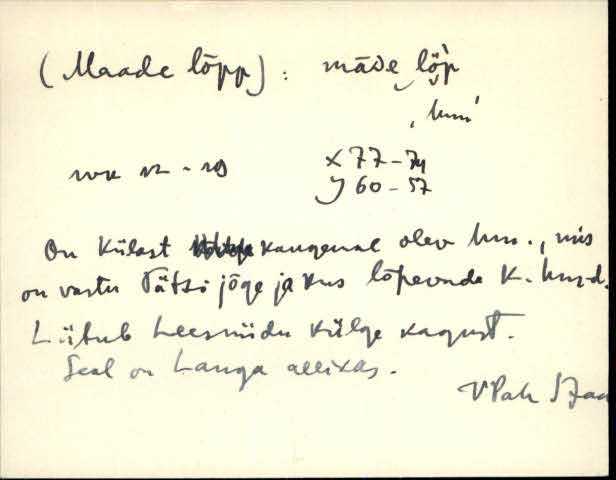 (Maade lõpp): māDe lö̀p
, hun'
x 77-74
y 60-57
On külast kaugemal olev hm., mis
on vastu Tätsi jõge ja kus lõpevad K. hm-d.
Liitub Leesniidu külge kagust.
Seal on Langa allikas.